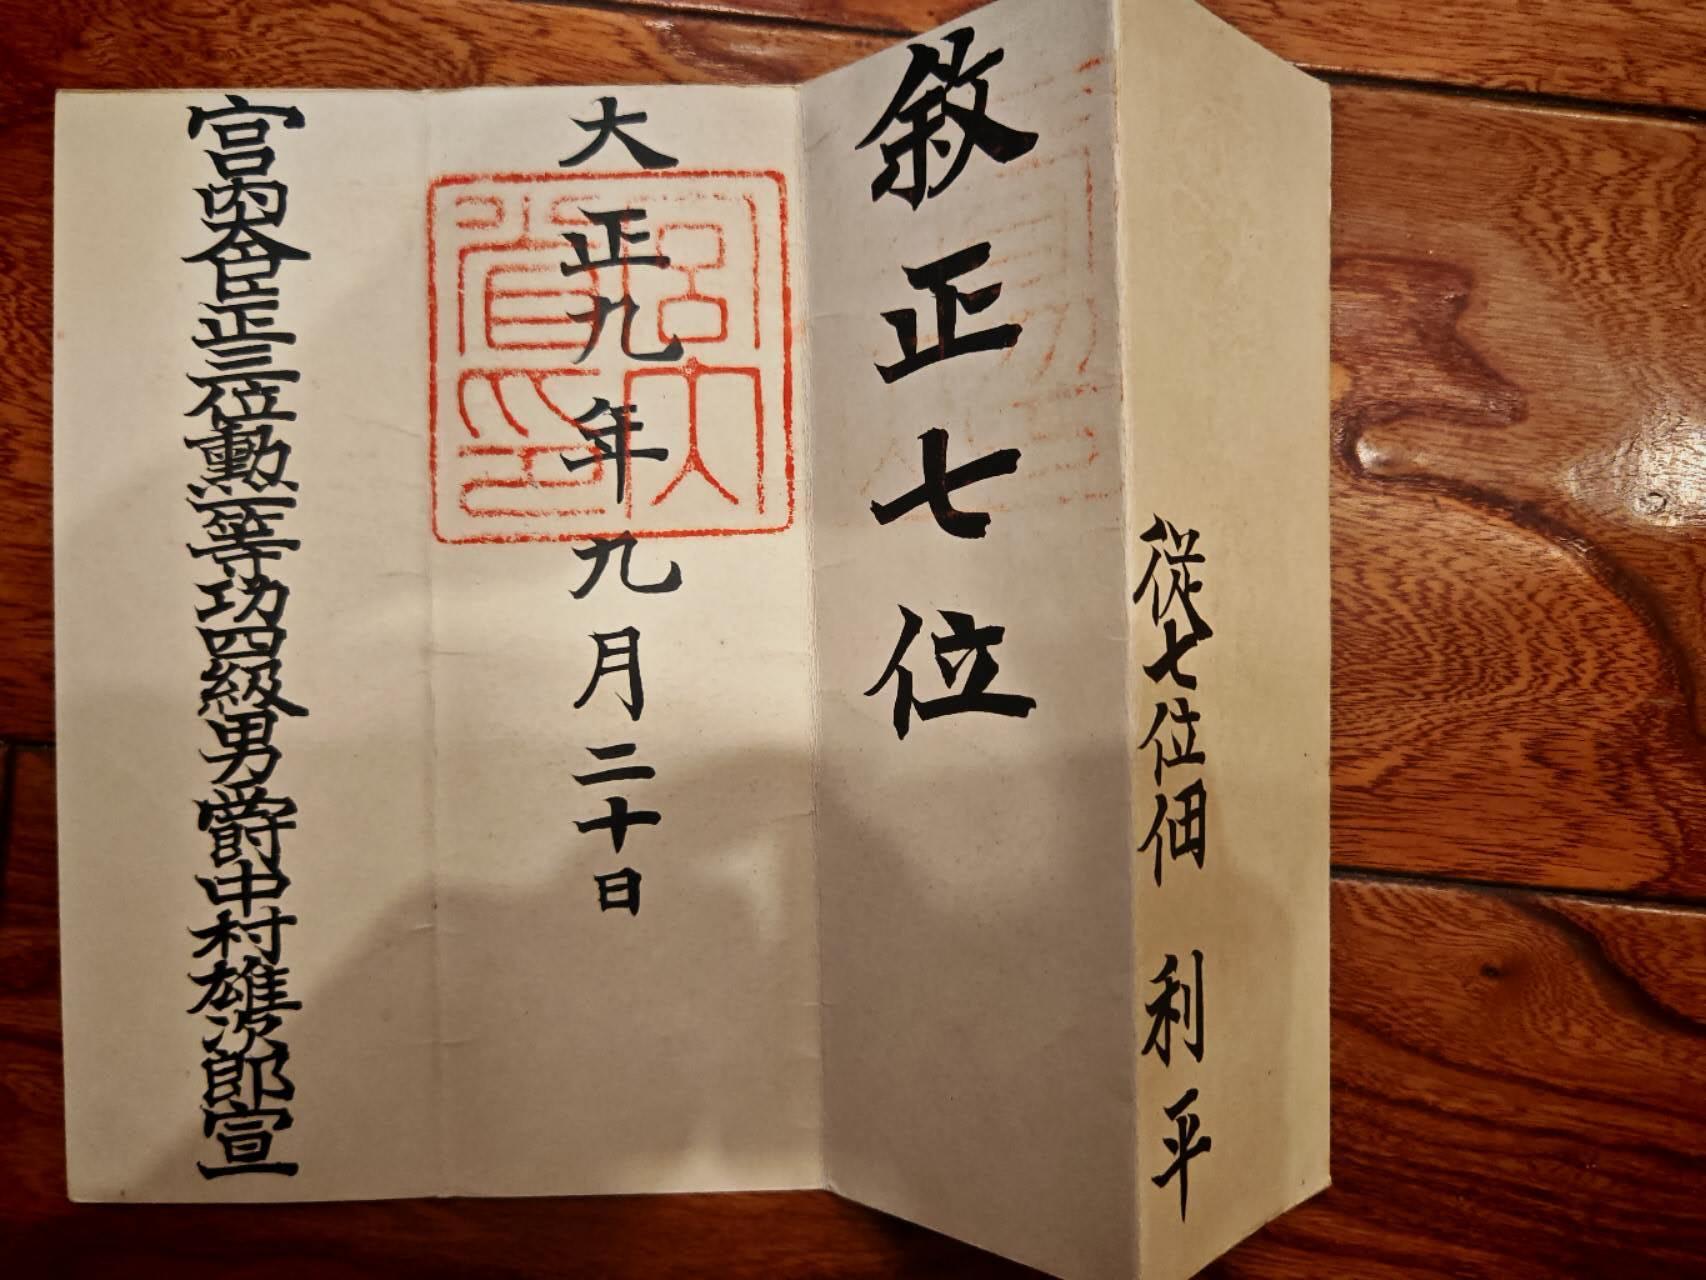 從七位佃 利平
敍正七位
大正九年九月二十日
宮内省印
宮内大臣正三位勳一等功四級男爵中村雄次郎宣